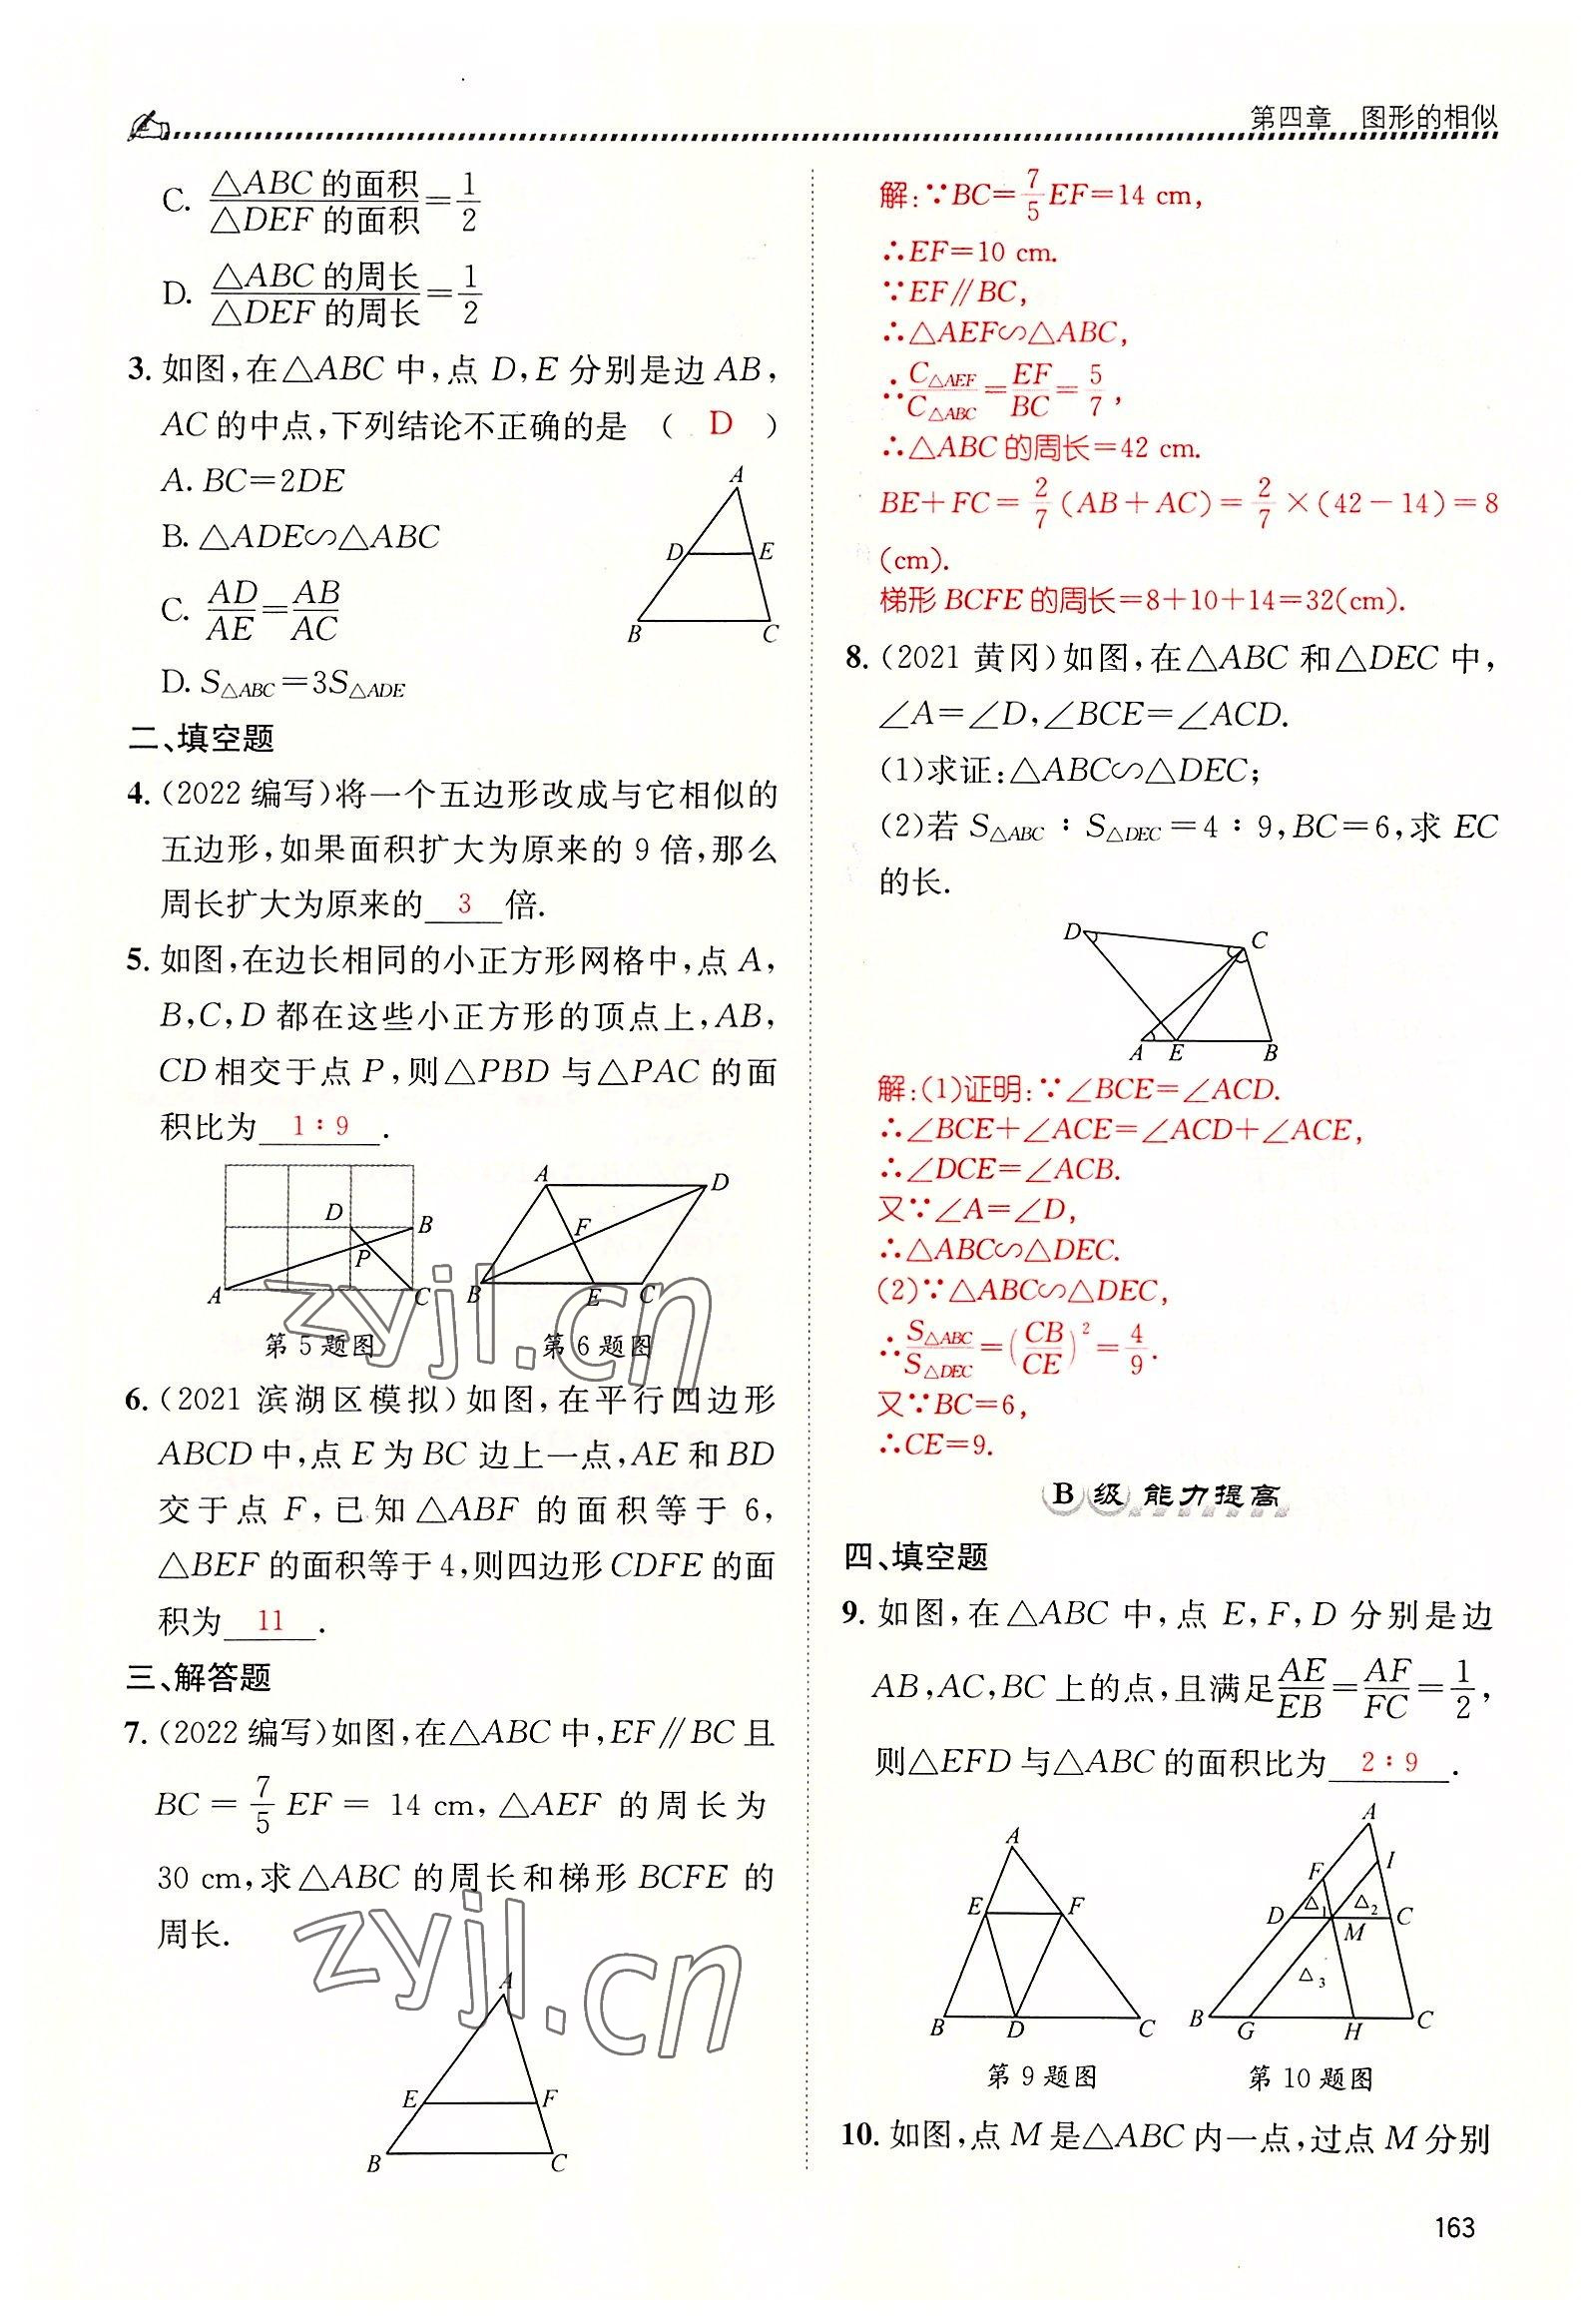 第四章 图形的相似
C. △ABC 的面积/△DEF 的面积=1/2
D. △ABC 的周长/△DEF 的周长=1/2
3. 如图,在△ABC 中,点 D,E 分别是边 AB,
AC 的中点,下列结论不正确的是 ( D )
A. BC=2DE
B. △ADE∽△ABC
C. AD/AE=AB/AC
D. S△ABC=3S△ADE
A
D
E
B
C
二、填空题
4. (2022 编写)将一个五边形改成与它相似的
五边形,如果面积扩大为原来的 9 倍,那么
周长扩大为原来的 3 倍.
5. 如图,在边长相同的小正方形网格中,点 A,
B,C,D 都在这些小正方形的顶点上,AB,
CD 相交于点 P,则△PBD 与△PAC 的面
积比为 1∶9 .
D
B
P
A
C
第 5 题图
A
D
F
B
E
C
第 6 题图
6. (2021 滨湖区模拟)如图,在平行四边形
ABCD 中,点 E 为 BC 边上一点,AE 和 BD
交于点 F,已知△ABF 的面积等于 6,
△BEF 的面积等于 4,则四边形 CDFE 的面
积为 11 .
三、解答题
7. (2022 编写)如图,在△ABC 中,EF∥BC 且
BC=7/5EF=14 cm,△AEF 的周长为
30 cm,求△ABC 的周长和梯形 BCFE 的
周长.
A
E
F
B
C
zyjl.cn
zyjl.cn
解:∵BC=7/5EF=14 cm,
∴EF=10 cm.
∵EF∥BC,
∴△AEF∽△ABC,
∴C△AEF/C△ABC=EF/BC=5/7,
∴△ABC 的周长=42 cm.
BE+FC=2/7(AB+AC)=2/7×(42-14)=8
(cm).
梯形 BCFE 的周长=8+10+14=32(cm).
8. (2021 黄冈)如图,在△ABC 和△DEC 中,
∠A=∠D,∠BCE=∠ACD.
(1)求证:△ABC∽△DEC;
(2)若 S△ABC∶S△DEC=4∶9,BC=6,求 EC
的长.
D
C
A
E
B
解:(1)证明:∵∠BCE=∠ACD.
∴∠BCE+∠ACE=∠ACD+∠ACE,
∴∠DCE=∠ACB.
又∵∠A=∠D,
∴△ABC∽△DEC.
(2)∵△ABC∽△DEC,
∴S△ABC/S△DEC=(CB/CE)²=4/9.
又∵BC=6,
∴CE=9.
B 级 能力提高
四、填空题
9. 如图,在△ABC 中,点 E,F,D 分别是边
AB,AC,BC 上的点,且满足AE/EB=AF/FC=1/2,
则△EFD 与△ABC 的面积比为 2∶9 .
A
E
F
B
D
C
第 9 题图
A
F
I
D
△1
△2
C
M
△3
B
G
H
C
第 10 题图
10. 如图,点 M 是△ABC 内一点,过点 M 分别
163